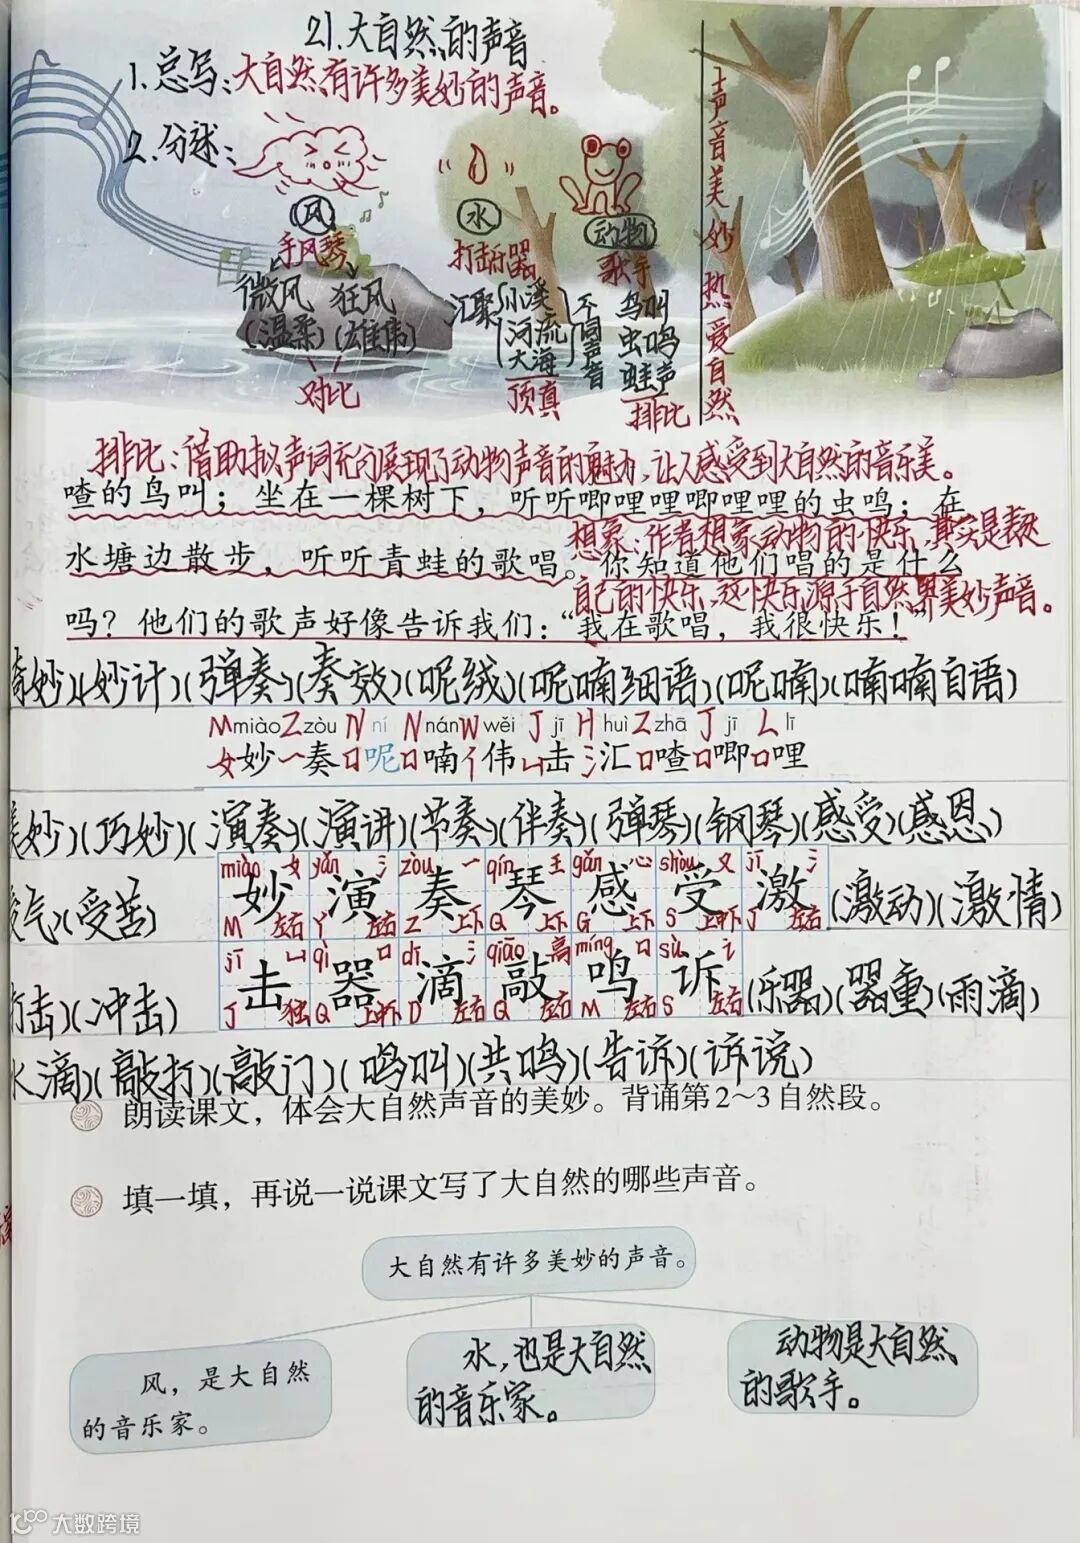 21.大自然的声音
1.总写:大自然有许多美妙的声音。
2.分述:
风 水 动物
手风琴 打击乐器 歌手
微风 狂风
(温柔)(雄伟)
对比
汇聚 小溪 河流 大海 不同声音
顶真
鸟叫
虫鸣
蛙声
排比
声音美妙 热爱自然
排比:借助拟声词充分展现了动物声音的魅力,让人感受到大自然的音乐美。
喳的鸟叫;坐在一棵树下,听听唧哩哩唧哩哩的虫鸣;在
想象:作者想象动物的快乐,其实是表达
水塘边散步,听听青蛙的歌唱。你知道他们唱的是什么
自己的快乐,这快乐源于自然界美妙声音。
吗?他们的歌声好像告诉我们:“我在歌唱,我很快乐!”
妙)(妙计)(弹奏)(奏效)(呢绒)(呢喃细语)(呢喃)(喃喃自语)
M miào Z zòu N ní N nán W wěi J jī H huì Z zhā J jī L lī
女妙 一奏 口呢 口喃 亻伟 凵击 氵汇 口喳 口唧 口哩
妙)(巧妙)(演奏)(演讲)(节奏)(伴奏)(弹琴)(钢琴)(感受)(感恩)
miào 女 yǎn 氵 zòu 一 qín 王 gǎn 心 shòu 又 jī 氵
气)(受苦) 妙 演 奏 琴 感 受 激 (激动)(激情)
M 左右 Y 左右 Z 上下 Q 上下 G 上下 S 上中下 J 左右
jī 凵 qì 口 dī 氵 qiāo 高 míng 口 sù 讠
打击)(冲击) 击 器 滴 敲 鸣 诉 (乐器)(器重)(雨滴)
J 独 Q 上中下 D 左右 Q 左右 M 左右 S 左右
水滴)(敲打)(敲门)(鸣叫)(共鸣)(告诉)(诉说)
朗读课文,体会大自然声音的美妙。背诵第2~3自然段。
填一填,再说一说课文写了大自然的哪些声音。
大自然有许多美妙的声音。
风,是大自然
的音乐家。
水,也是大自然
的音乐家。
动物是大自然
的歌手。
大数跨境